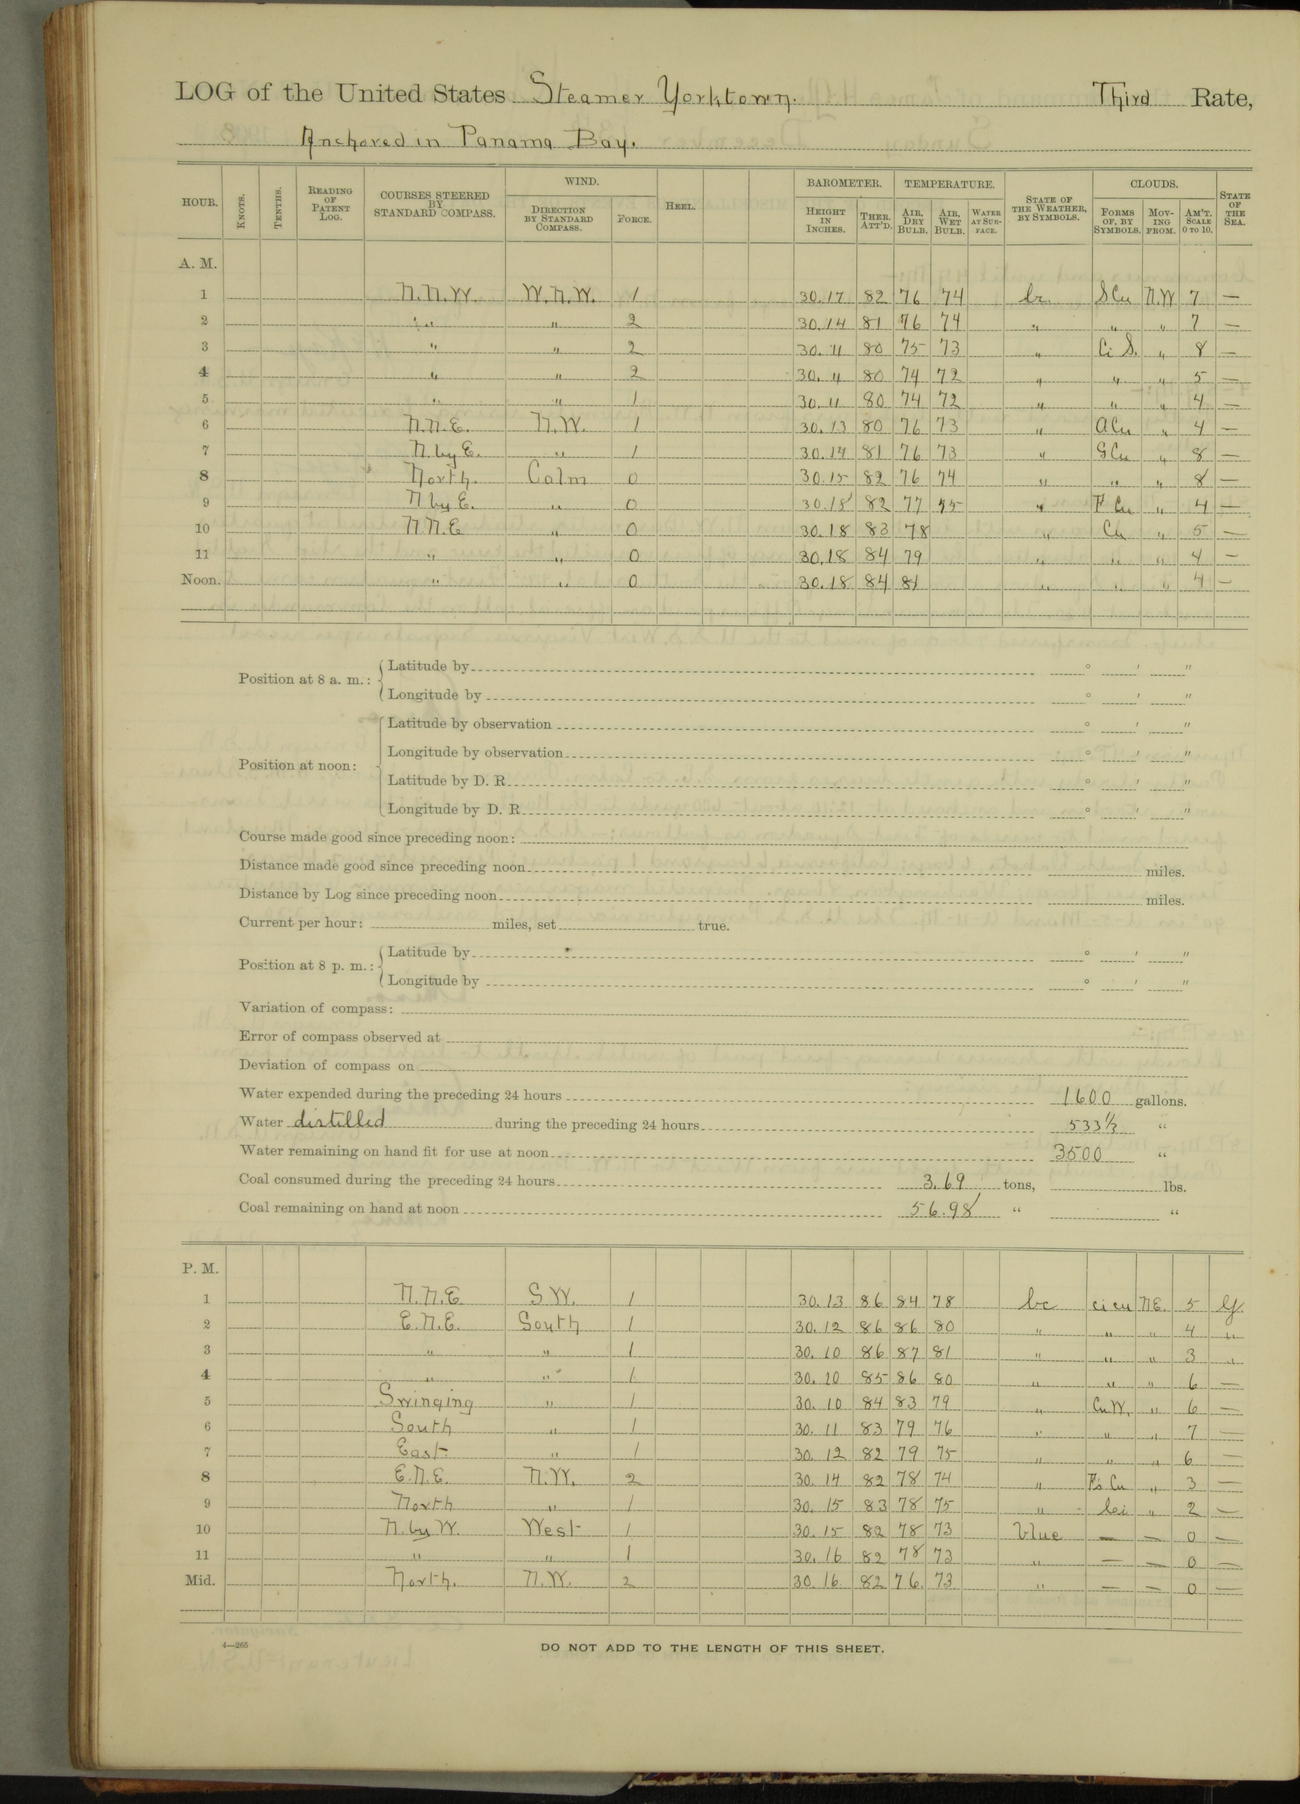 LOG of the United States Steamer Yorktown. Third Rate,
Anchored in Panama Bay.
HOUR. KNOTS. TENTHS. READING OF PATENT LOG. COURSES STEERED BY STANDARD COMPASS. WIND. DIRECTION BY STANDARD COMPASS. FORCE. HEEL. BAROMETER. HEIGHT IN INCHES. THER. ATT'D. TEMPERATURE. AIR, DRY BULB. AIR, WET BULB. WATER AT SURFACE. STATE OF THE WEATHER, BY SYMBOLS. CLOUDS. FORMS OF, BY SYMBOLS. MOVING FROM. AM'T. SCALE 0 TO 10. STATE OF THE SEA.
A. M.
1 N.N.W. W.N.W. 1 30.17 82 76 74 bc. S Cu N.W 7 —
2 " " 2 30.14 81 76 74 " " " 7 —
3 " " 2 30.11 80 75 73 " Ci S. " 8 —
4 " " 2 30.11 80 74 72 " " " 5 —
5 " " 1 30.11 80 74 72 " " " 4 —
6 N.N.E. N.W. 1 30.13 80 76 73 " A Cu " 4 —
7 N. by E. " 1 30.14 81 76 73 " S Cu " 8 —
8 North. Calm 0 30.15 82 76 74 " " " 8 —
9 N by E. " 0 30.18 82 77 75 " F Cu " 4 —
10 N.N.E " 0 30.18 83 78 " Cu " 5 —
11 " " 0 30.18 84 79 " " " 4 —
Noon. " " 0 30.18 84 81 " " " 4 —
Position at 8 a. m.: Latitude by ° ′ ″
Longitude by ° ′ ″
Position at noon: Latitude by observation ° ′ ″
Longitude by observation ° ′ ″
Latitude by D. R ° ′ ″
Longitude by D. R ° ′ ″
Course made good since preceding noon:
Distance made good since preceding noon miles.
Distance by Log since preceding noon miles.
Current per hour: miles, set true.
Position at 8 p. m.: Latitude by ° ′ ″
Longitude by ° ′ ″
Variation of compass:
Error of compass observed at
Deviation of compass on
Water expended during the preceding 24 hours 1600 gallons.
Water distilled during the preceding 24 hours 533⅓ "
Water remaining on hand fit for use at noon 3500 "
Coal consumed during the preceding 24 hours 3.69 tons, lbs.
Coal remaining on hand at noon 56.98 " "
P. M.
1 N.N.E. S.W. 1 30.13 86 84 78 bc ci cu N.E. 5
2 E.N.E. South 1 30.12 86 86 80 " " " 4 "
3 " " 1 30.10 86 87 81 " " " 3 "
4 " " 1 30.10 85 86 80 " " " 6 —
5 Swinging " 1 30.10 84 83 79 " " 6 —
6 South " 1 30.11 83 79 76 " " " 7 —
7 East " 1 30.12 82 79 75 " " " 6 —
8 E.N.E. N.W. 2 30.14 82 78 74 " " 3 —
9 North " 1 30.15 83 78 75 " " 2 —
10 N. by W. West 1 30.15 82 78 73 blue — — 0 —
11 " " 1 30.16 82 78 73 " — — 0 —
Mid. North. N.W. 2 30.16 82 76. 73 " — — 0 —
4—265
DO NOT ADD TO THE LENGTH OF THIS SHEET.